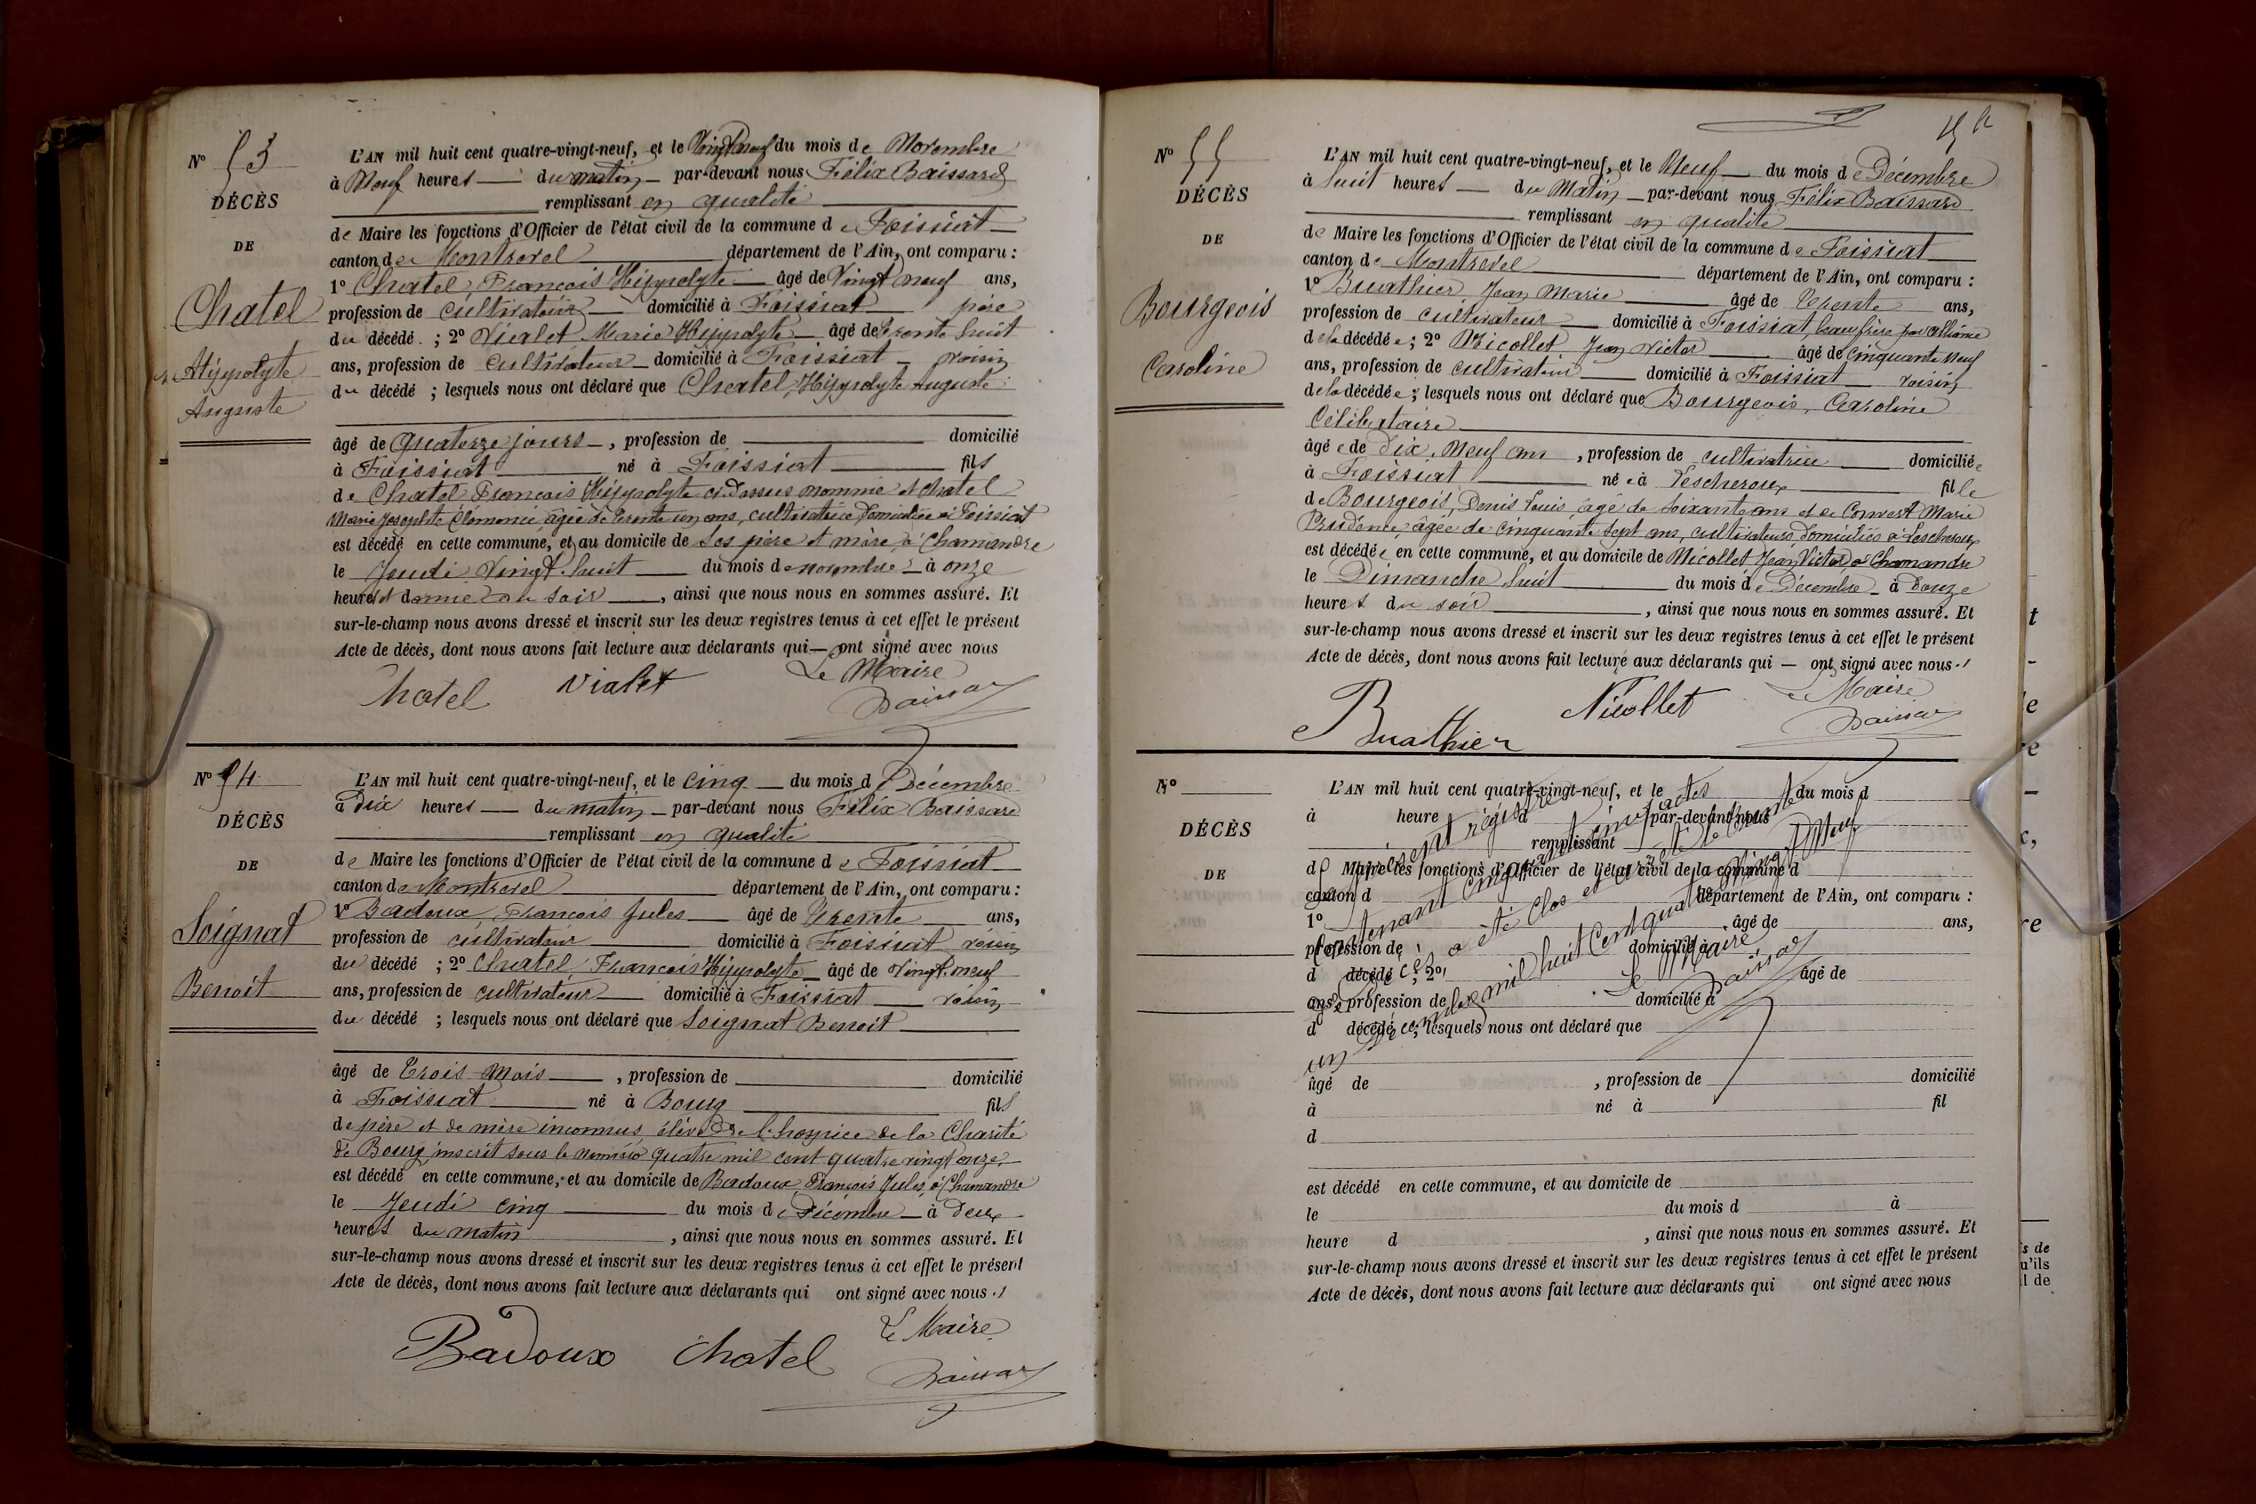 N° 53
DÉCÈS
DE
Chatel
Hippolyte
Auguste
L'AN mil huit cent quatre-vingt-neuf, et le Vingt neuf du mois de Novembre
à Neuf heures du matin par-devant nous Félix Baissard
remplissant en qualité
de Maire les fonctions d'Officier de l'état civil de la commune de Foissiat
canton de Montrevel département de l'Ain, ont comparu :
1° Chatel François Hippolyte âgé de Vingt neuf ans,
profession de cultivateur domicilié à Foissiat père
du décédé ; 2° Vialet Marie Hippolyte âgé de trente huit
ans, profession de cultivateur domicilié à Foissiat voisin
du décédé ; lesquels nous ont déclaré que Chatel, Hippolyte Auguste
âgé de quatorze jours, profession de domicilié
à Foissiat né à Foissiat fils
de Chatel François Hippolyte ci-dessus nommé et Chatel
Marie Josephte Clémence âgée de trente un ans, cultivatrice domiciliée à Foissiat
est décédé en cette commune, et au domicile de ses père et mère, à Chamandre
le Jeudi Vingt huit du mois de novembre à onze
heures et demie du soir, ainsi que nous nous en sommes assuré. Et
sur-le-champ nous avons dressé et inscrit sur les deux registres tenus à cet effet le présent
Acte de décès, dont nous avons fait lecture aux déclarants qui — ont signé avec nous
Le Maire
Chatel Vialet Baissard
N° 54
DÉCÈS
DE
Soignat
Benoit
L'AN mil huit cent quatre-vingt-neuf, et le cinq du mois de Décembre
à Dix heures du matin par-devant nous Félix Baissard
remplissant en qualité
de Maire les fonctions d'Officier de l'état civil de la commune de Foissiat
canton de Montrevel département de l'Ain, ont comparu :
1° Badoux, François Jules âgé de Trente ans,
profession de cultivateur domicilié à Foissiat voisin
du décédé ; 2° Chatel, François Hippolyte âgé de Vingt neuf
ans, profession de cultivateur domicilié à Foissiat voisin
du décédé ; lesquels nous ont déclaré que Soignat Benoit
âgé de Trois Mois, profession de domicilié
à Foissiat né à Bourg fils
de père et de mère inconnus élève de l'hospice de la Charité
de Bourg, inscrit sous le numéro quatre mil cent quatre vingt onze
est décédé en cette commune, et au domicile de Badoux, François Jules, à Chamandre
le Jeudi cinq du mois de Décembre à deux
heures du matin, ainsi que nous nous en sommes assuré. Et
sur-le-champ nous avons dressé et inscrit sur les deux registres tenus à cet effet le présent
Acte de décès, dont nous avons fait lecture aux déclarants qui ont signé avec nous
Le Maire
Badoux Chatel Baissard
N° 55
DÉCÈS
DE
Bourgeois
Caroline
L'AN mil huit cent quatre-vingt-neuf, et le Neuf du mois de Décembre
à huit heures du Matin par-devant nous Félix Baissard
remplissant en qualité
de Maire les fonctions d'Officier de l'état civil de la commune de Foissiat
canton de Montrevel département de l'Ain, ont comparu :
1° Buathier Jean Marie âgé de Trente ans,
profession de cultivateur domicilié à Foissiat, beau frère par alliance
de la décédée ; 2° Nicollet Jean Victor âgé de cinquante neuf
ans, profession de cultivateur domicilié à Foissiat voisin
de la décédée ; lesquels nous ont déclaré que Bourgeois, Caroline
Célibataire
âgée de Dix Neuf ans, profession de cultivatrice domiciliée
à Foissiat née à Lescheroux fille
de Bourgeois, Denis Louis, âgé de soixante ans et de Convert Marie
Prudence, âgée de cinquante sept ans, cultivateurs, domiciliés à Lescheroux
est décédée en cette commune, et au domicile de Nicollet Jean Victor, à Chamandre
le Dimanche huit du mois de Décembre à Douze
heures du soir, ainsi que nous nous en sommes assuré. Et
sur-le-champ nous avons dressé et inscrit sur les deux registres tenus à cet effet le présent
Acte de décès, dont nous avons fait lecture aux déclarants qui — ont signé avec nous
Le Maire
Buathier Nicollet Baissard
N°
DÉCÈS
DE
L'AN mil huit cent quatre-vingt-neuf, et le du mois d
à heure d par-devant nous
remplissant
d Maire les fonctions d'Officier de l'état civil de la commune d
canton d département de l'Ain, ont comparu :
1° âgé de ans,
profession de domicilié à
d décédé ; 2° âgé de
ans, profession de domicilié à
d décédé ; lesquels nous ont déclaré que
âgé de , profession de domicilié
à né à fil
d
est décédé en cette commune, et au domicile de
le du mois d à
heure d , ainsi que nous nous en sommes assuré. Et
sur-le-champ nous avons dressé et inscrit sur les deux registres tenus à cet effet le présent
Acte de décès, dont nous avons fait lecture aux déclarants qui ont signé avec nous
Le présent régistre
contenant cinquante cinq actes
de décès a été clos et arrêté le trente
un Décembre mil huit cent quatre vingt Neuf
Le Maire
Baissard